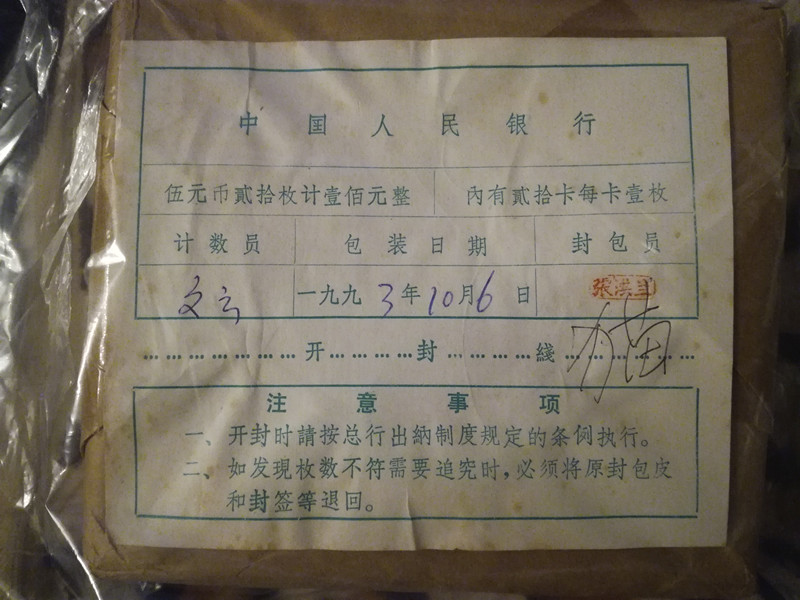 中国人民银行
伍元币貳拾枚计壹佰元整 內有貳拾卡每卡壹枚
计数员 包装日期 封包员
文云 一九九3年10月6日 張洪
……………………开…………封…………綫……………………
注意事项
一、开封时請按总行出納制度规定的条例执行。
二、如发现枚数不符需要追究时，必须将原封包皮
和封签等退回。